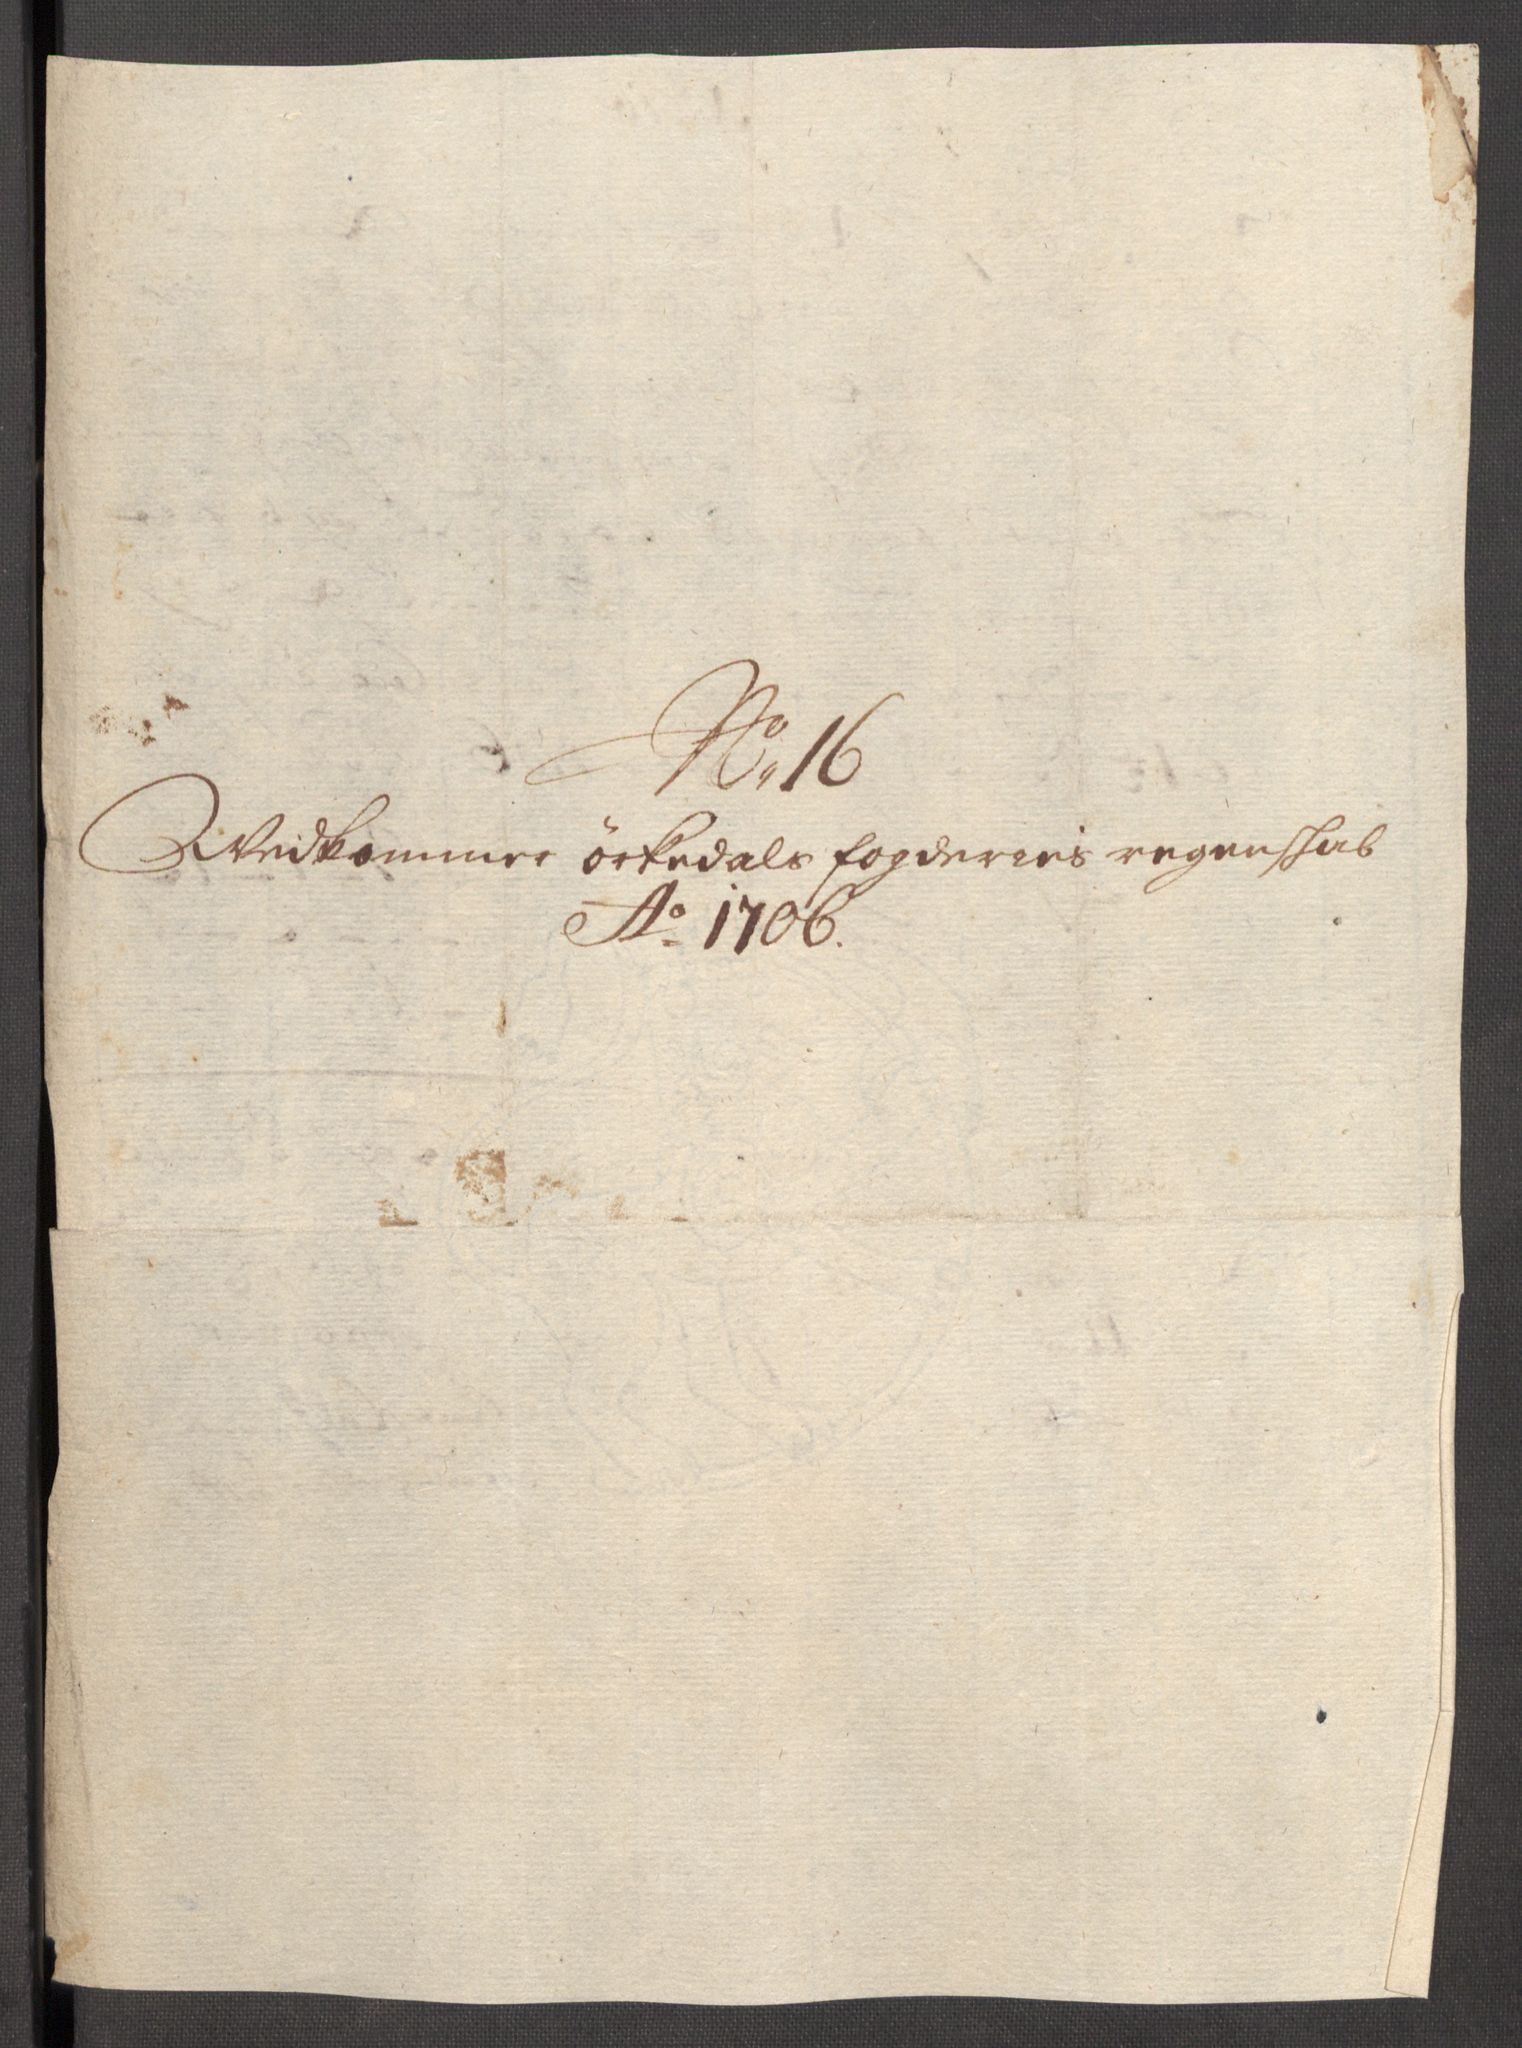 No. 16
Wedkommer örkedals fogderies regenskab
Ao. 1706.